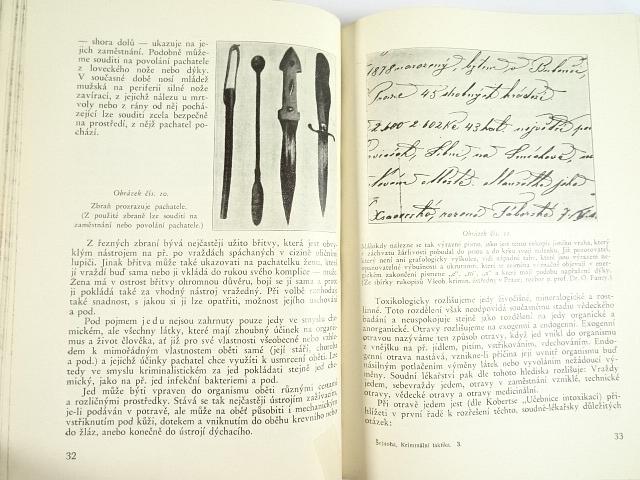 — shora dolů — ukazuje na je-
jich zaměstnání. Podobně může-
me souditi na povolání pachatele
z loveckého nože nebo dýky.
V současné době nosí mládež
mužská na periferii silné nože
zavírací, z jejichž nálezu u mrt-
voly nebo z rány od něj pochá-
zející lze souditi zcela bezpečně
na prostředí, z nějž pachatel po-
chází.
Obrázek čís. 10.
Zbraň prozrazuje pachatele.
(Z použité zbraně lze souditi na
zaměstnání nebo povolání pachatele.)
Z řezných zbraní bývá nejčastěji užito břitvy, která jest obvy-
klým nástrojem na př. po vraždách spáchaných v cizině opilými
lupiči. Jinak břitva může také ukazovati na pachatelku ženu, která
ji vraždí buď sama nebo ji vkládá do rukou svého komplice — muže.
Žena má v ostrost břitvy ohromnou důvěru, bojí se jí sama a proto
ji pokládá také za vhodný nástroj vražedný. Při volbě rozhoduje
také snadnost, s jakou si ji lze opatřiti, možnost jejího uschování
a pod.
Pod pojmem jedu nejsou zahrnuty pouze jedy ve smyslu che-
mickém, ale všechny látky, které mají zhoubný účinek na organis-
mus a život člověka, ať již pro své vlastnosti všeobecné nebo vzhle-
dem k mimořádným vlastnostem oběti samé (její stáří, choroba
a pod.) a jejichž účinky pachatel chce využíti k usmrcení oběti. Lze
tedy ve smyslu kriminalistickém za jed pokládati stejně jed che-
mický, jako na př. jed infekční bakteriemi a pod.
Jed může býti vpraven do organismu oběti různými cestami
a rozličnými prostředky. Stává se tak nejčastěji ústrojím zažívacím,
je-li podáván v potravě, ale může na oběť působiti i mechanickým
vstříknutím pod kůži, dotekem a vniknutím do oběhu krevního nebo
do žláz, anebo konečně do ústrojí dýchacího.
32
1878 narozený, bytem v Bubenči,
45 drobných krádeží
2.600 2602 Kč 43 hal. největší
na Smíchově,
Mostě. Manželka jeho
rozená Táborská
Obrázek čís. 11.
Toxikologicky rozlišujeme jedy živočišné, mineralogické a rost-
linné. Toto rozdělení však neodpovídá současnému stadiu vědeckého
badání a neuspokojuje stejně jako rozdělení na jedy organické a
anorganické. Otravy rozlišujeme na exogenní a endogenní. Exogenní
otravou nazýváme ten způsob otravy, když jed vnikl do organismu
z vnějšku na př. jídlem, pitím, vstřikováním, vdechováním. Endo-
genní otrava nastává, vznikne-li příčina její uvnitř organismu buď
násilným potlačením výměny látek nebo vyvoláním nežádoucí vý-
měny. Soudní lékařství pak dle tohoto hlediska rozlišuje: Vraždy
jedem, sebevraždy jedem, otravy v zaměstnání vzniklé, technické
otravy, vědecké otravy a otravy medicinální.
Při otravě jedem jest (dle Kobertse „Učebnice intoxikací) při-
hlížeti v první řadě k rozřešení těchto, soudně-lékařsky důležitých
otázek:
Šejnoha, Kriminální taktika. 3.
33